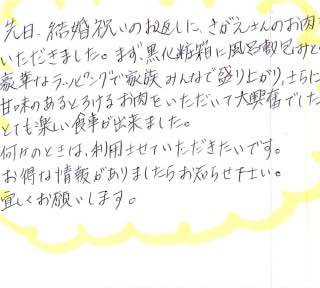 先日、結婚祝いのお返しに、さがえさんのお肉を
いただきました。まず、黒化粧箱に風呂敷包みと
豪華なラッピングで家族みんなで盛り上がり、さらに
甘味のあるとろけるお肉をいただいて大興奮でした
とても楽しい食事が出来ました。
何かのときは、利用させていただきたいです。
お得な情報がありましたらお知らせ下さい。
宜しくお願いします。